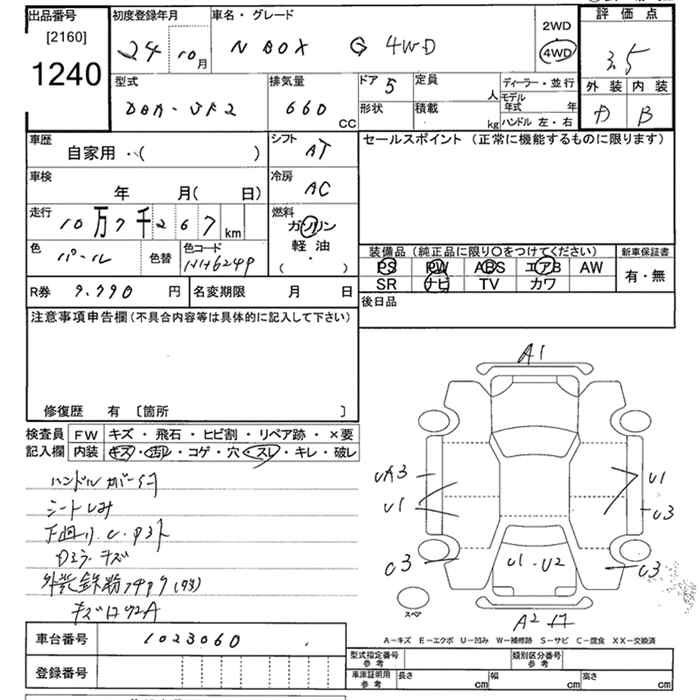 出品番号
[2160]
1240
初度登録年月
24 10月
車名・グレード
N BOX G 4WD
2WD
4WD
評価点
3.5
外装 内装
D B
型式
DBA-JF2
排気量
660 CC
ドア 5
定員 人
形状
積載 kg
ディーラー・並行
モデル年式 年
ハンドル 左・右
車歴
自家用・( )
シフト
AT
セールスポイント (正常に機能するものに限ります)
車検
年 月( 日)
冷房
AC
走行
10万7千267km
燃料
ガソリン
軽油
( )
色
パール
色替
色コード
NH624P
装備品 (純正品に限り○をつけてください)
PS PW ABS エアB AW
SR ナビ TV カワ
新車保証書
有・無
R券 9,790 円
名変期限 月 日
後日品
注意事項申告欄 (不具合内容等は具体的に記入して下さい)
修復歴 有 〔箇所 〕
検査員記入欄
FW キズ・飛石・ヒビ割・リペア跡・×要
内装 キズ・汚レ・コゲ・穴・スレ・キレ・破レ
シートしみ
下廻り C・
キズ
A1
UA3
U1
U1
U3
C3
U1・U2
C3
A2
スペア
A-キズ E-エクボ U-凹み W-補修跡 S-サビ C-腐食 XX-交換済
車台番号 1023060
登録番号
型式指定番号 参考
類別区分番号 参考
車庫証明用 参考
長さ cm 幅 cm 高さ cm